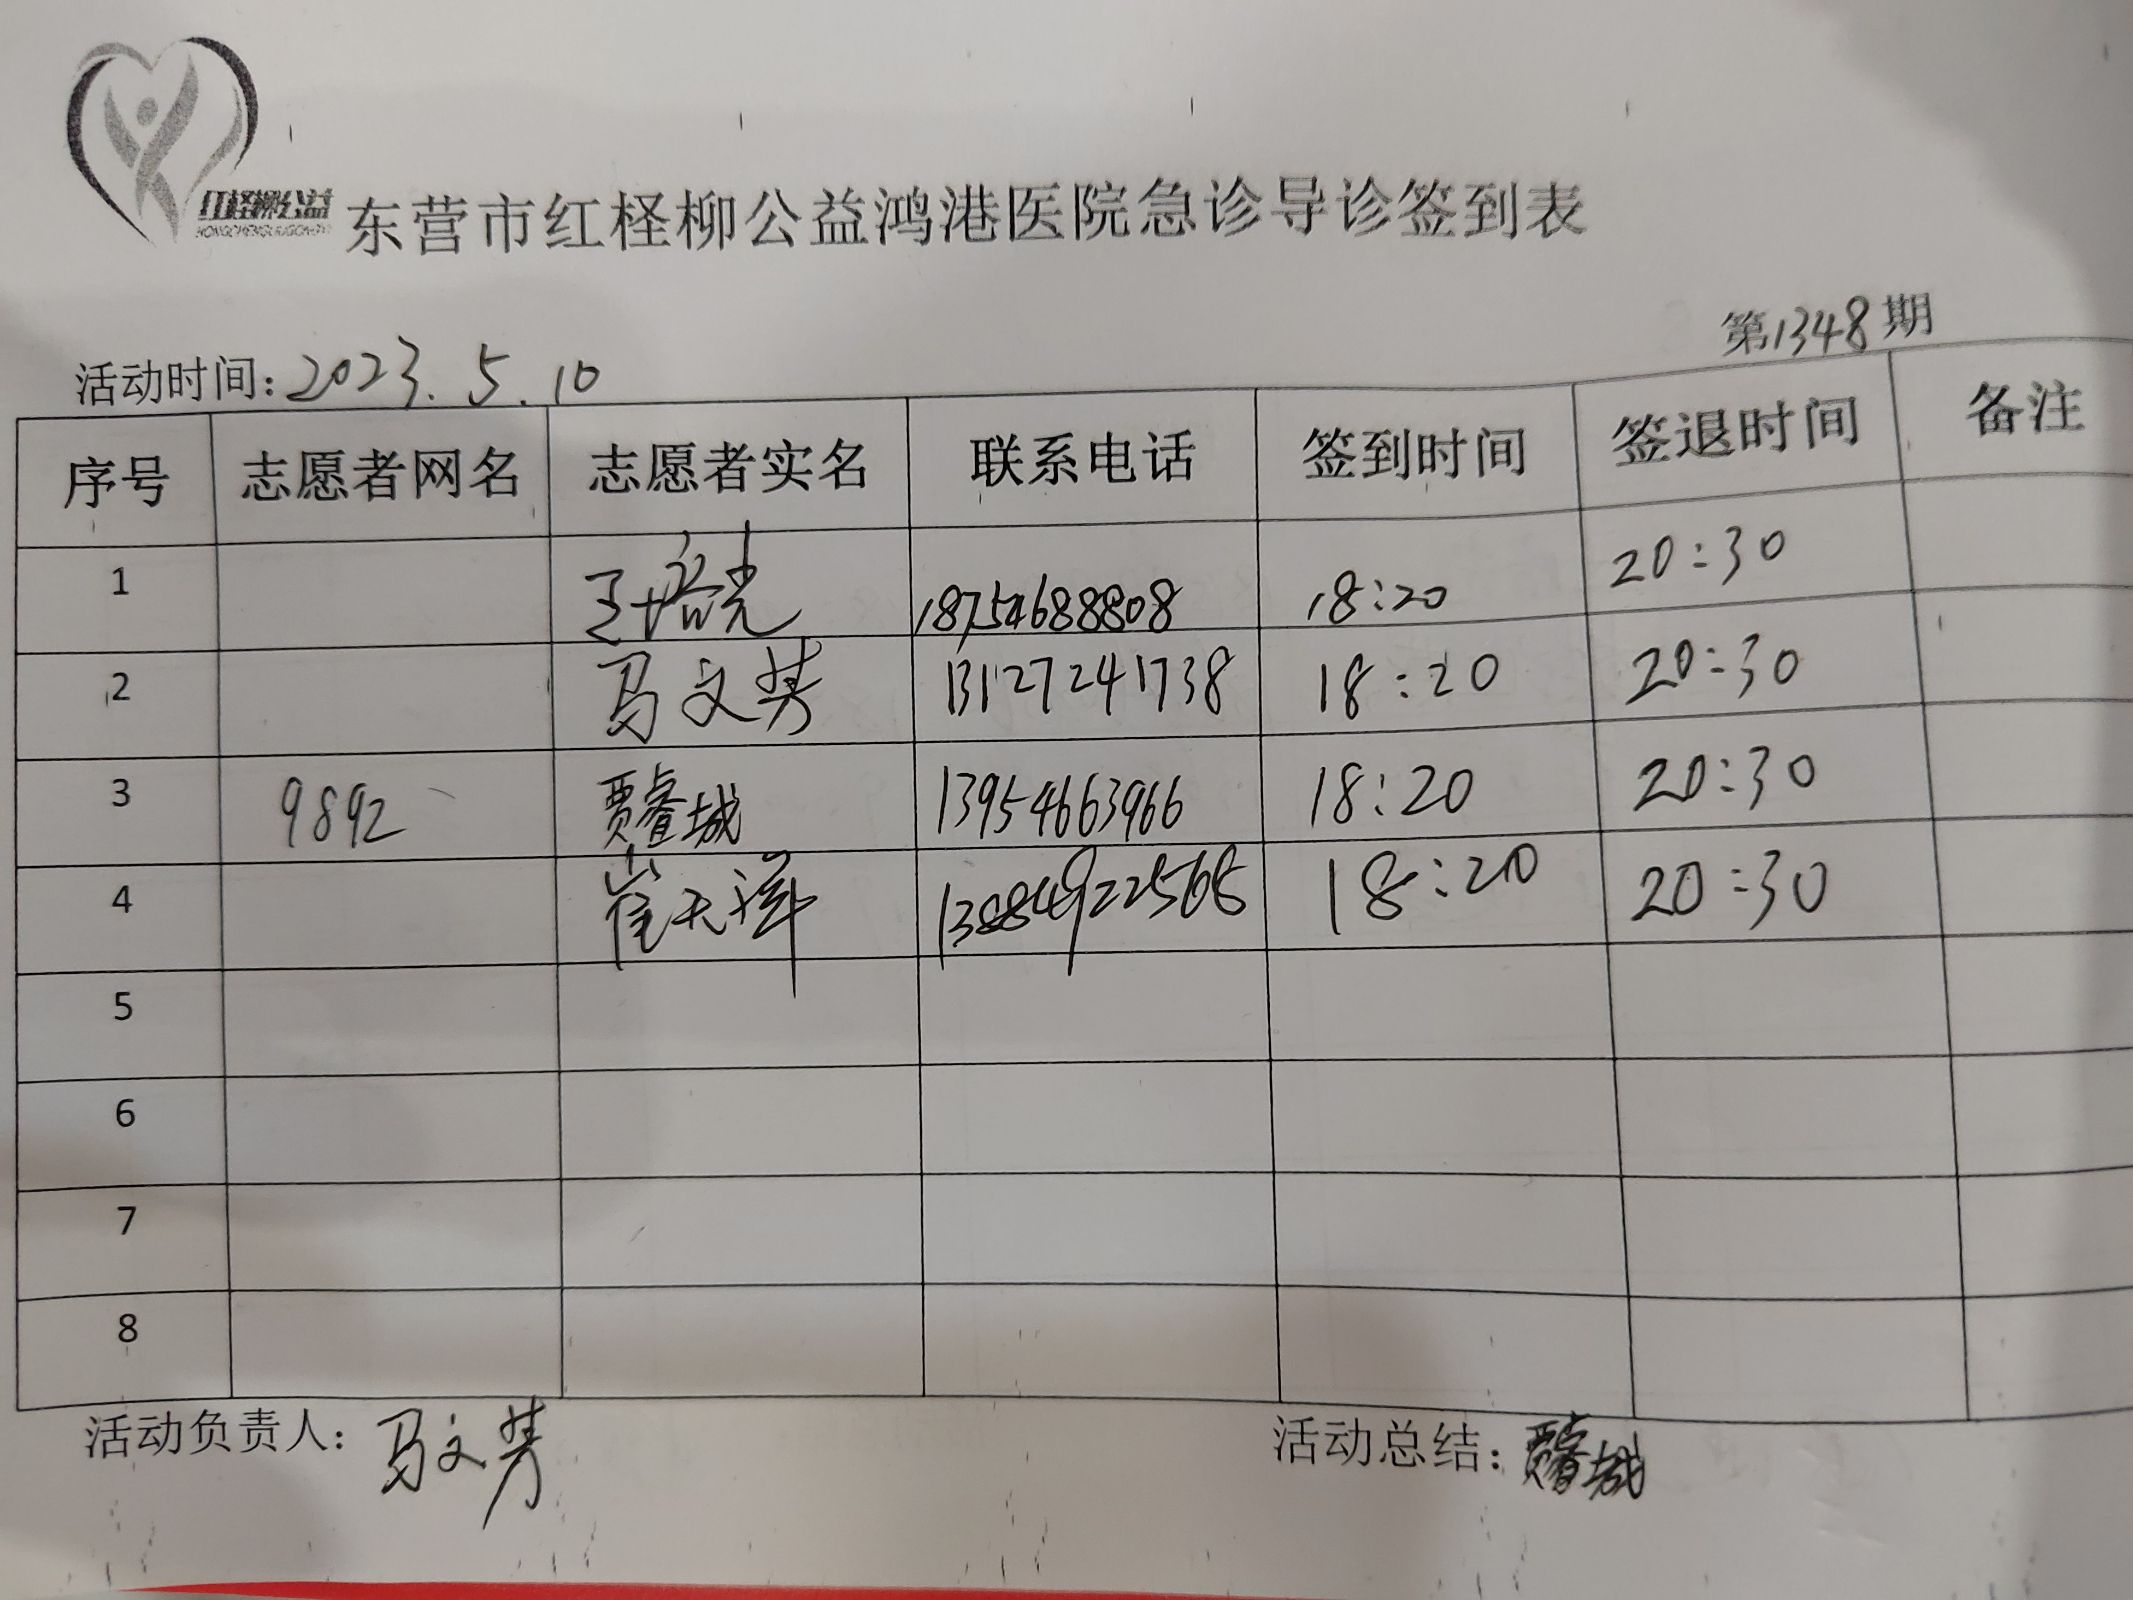 红柽柳公益
东营市红柽柳公益鸿港医院急诊导诊签到表
第1348期
活动时间：2023.5.10
序号 志愿者网名 志愿者实名 联系电话 签到时间 签退时间 备注
1 18754688808 18:20 20:30
2 马文芳 13127241738 18:20 20:30
3 9892 贾睿城 13954663966 18:20 20:30
4 崔天洋 18:20 20:30
5
6
7
8
活动负责人：马文芳 活动总结：贾睿城